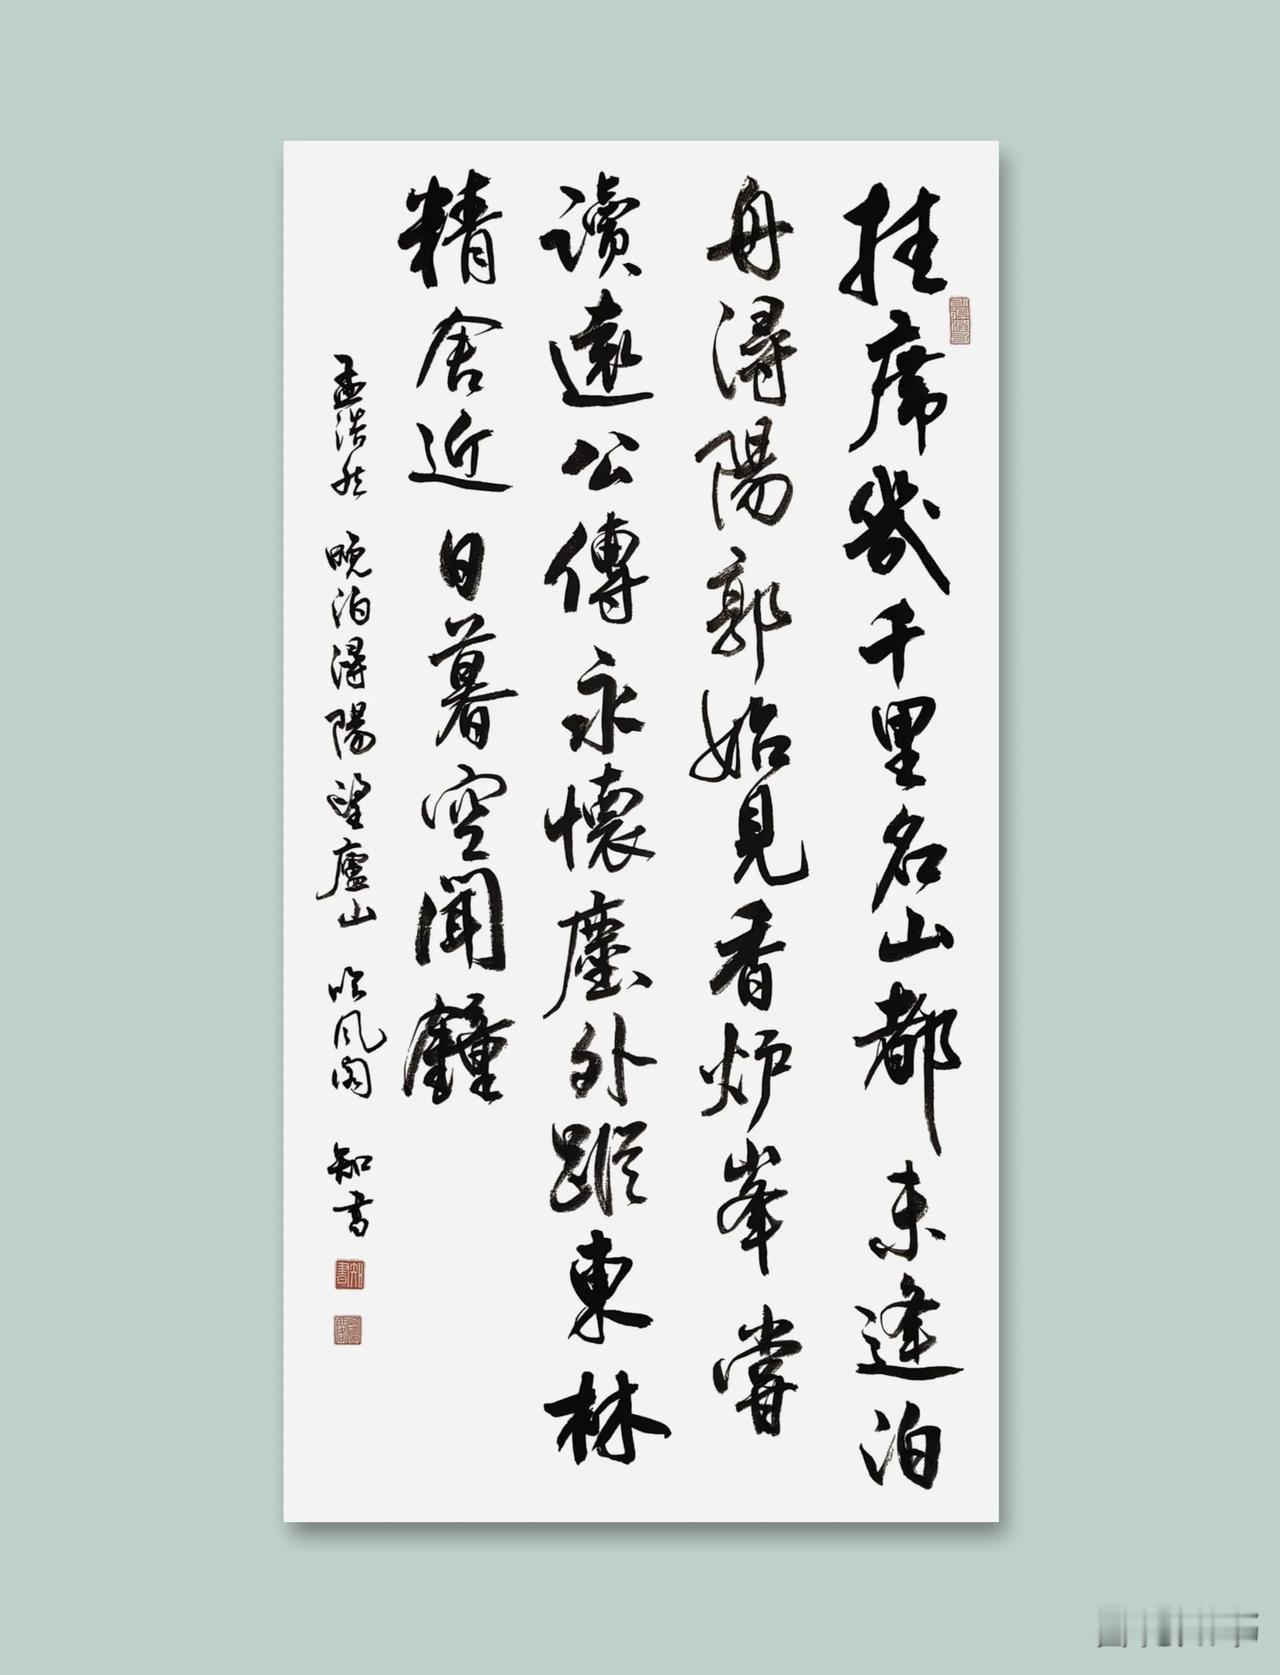 挂席幾千里名山都未逢泊
舟潯陽郭始見香炉峯嘗
讀遠公傳永懷塵外蹤東林
精舍近日暮空聞鐘
孟浩然 晚泊潯陽望廬山 吟风阁 知書